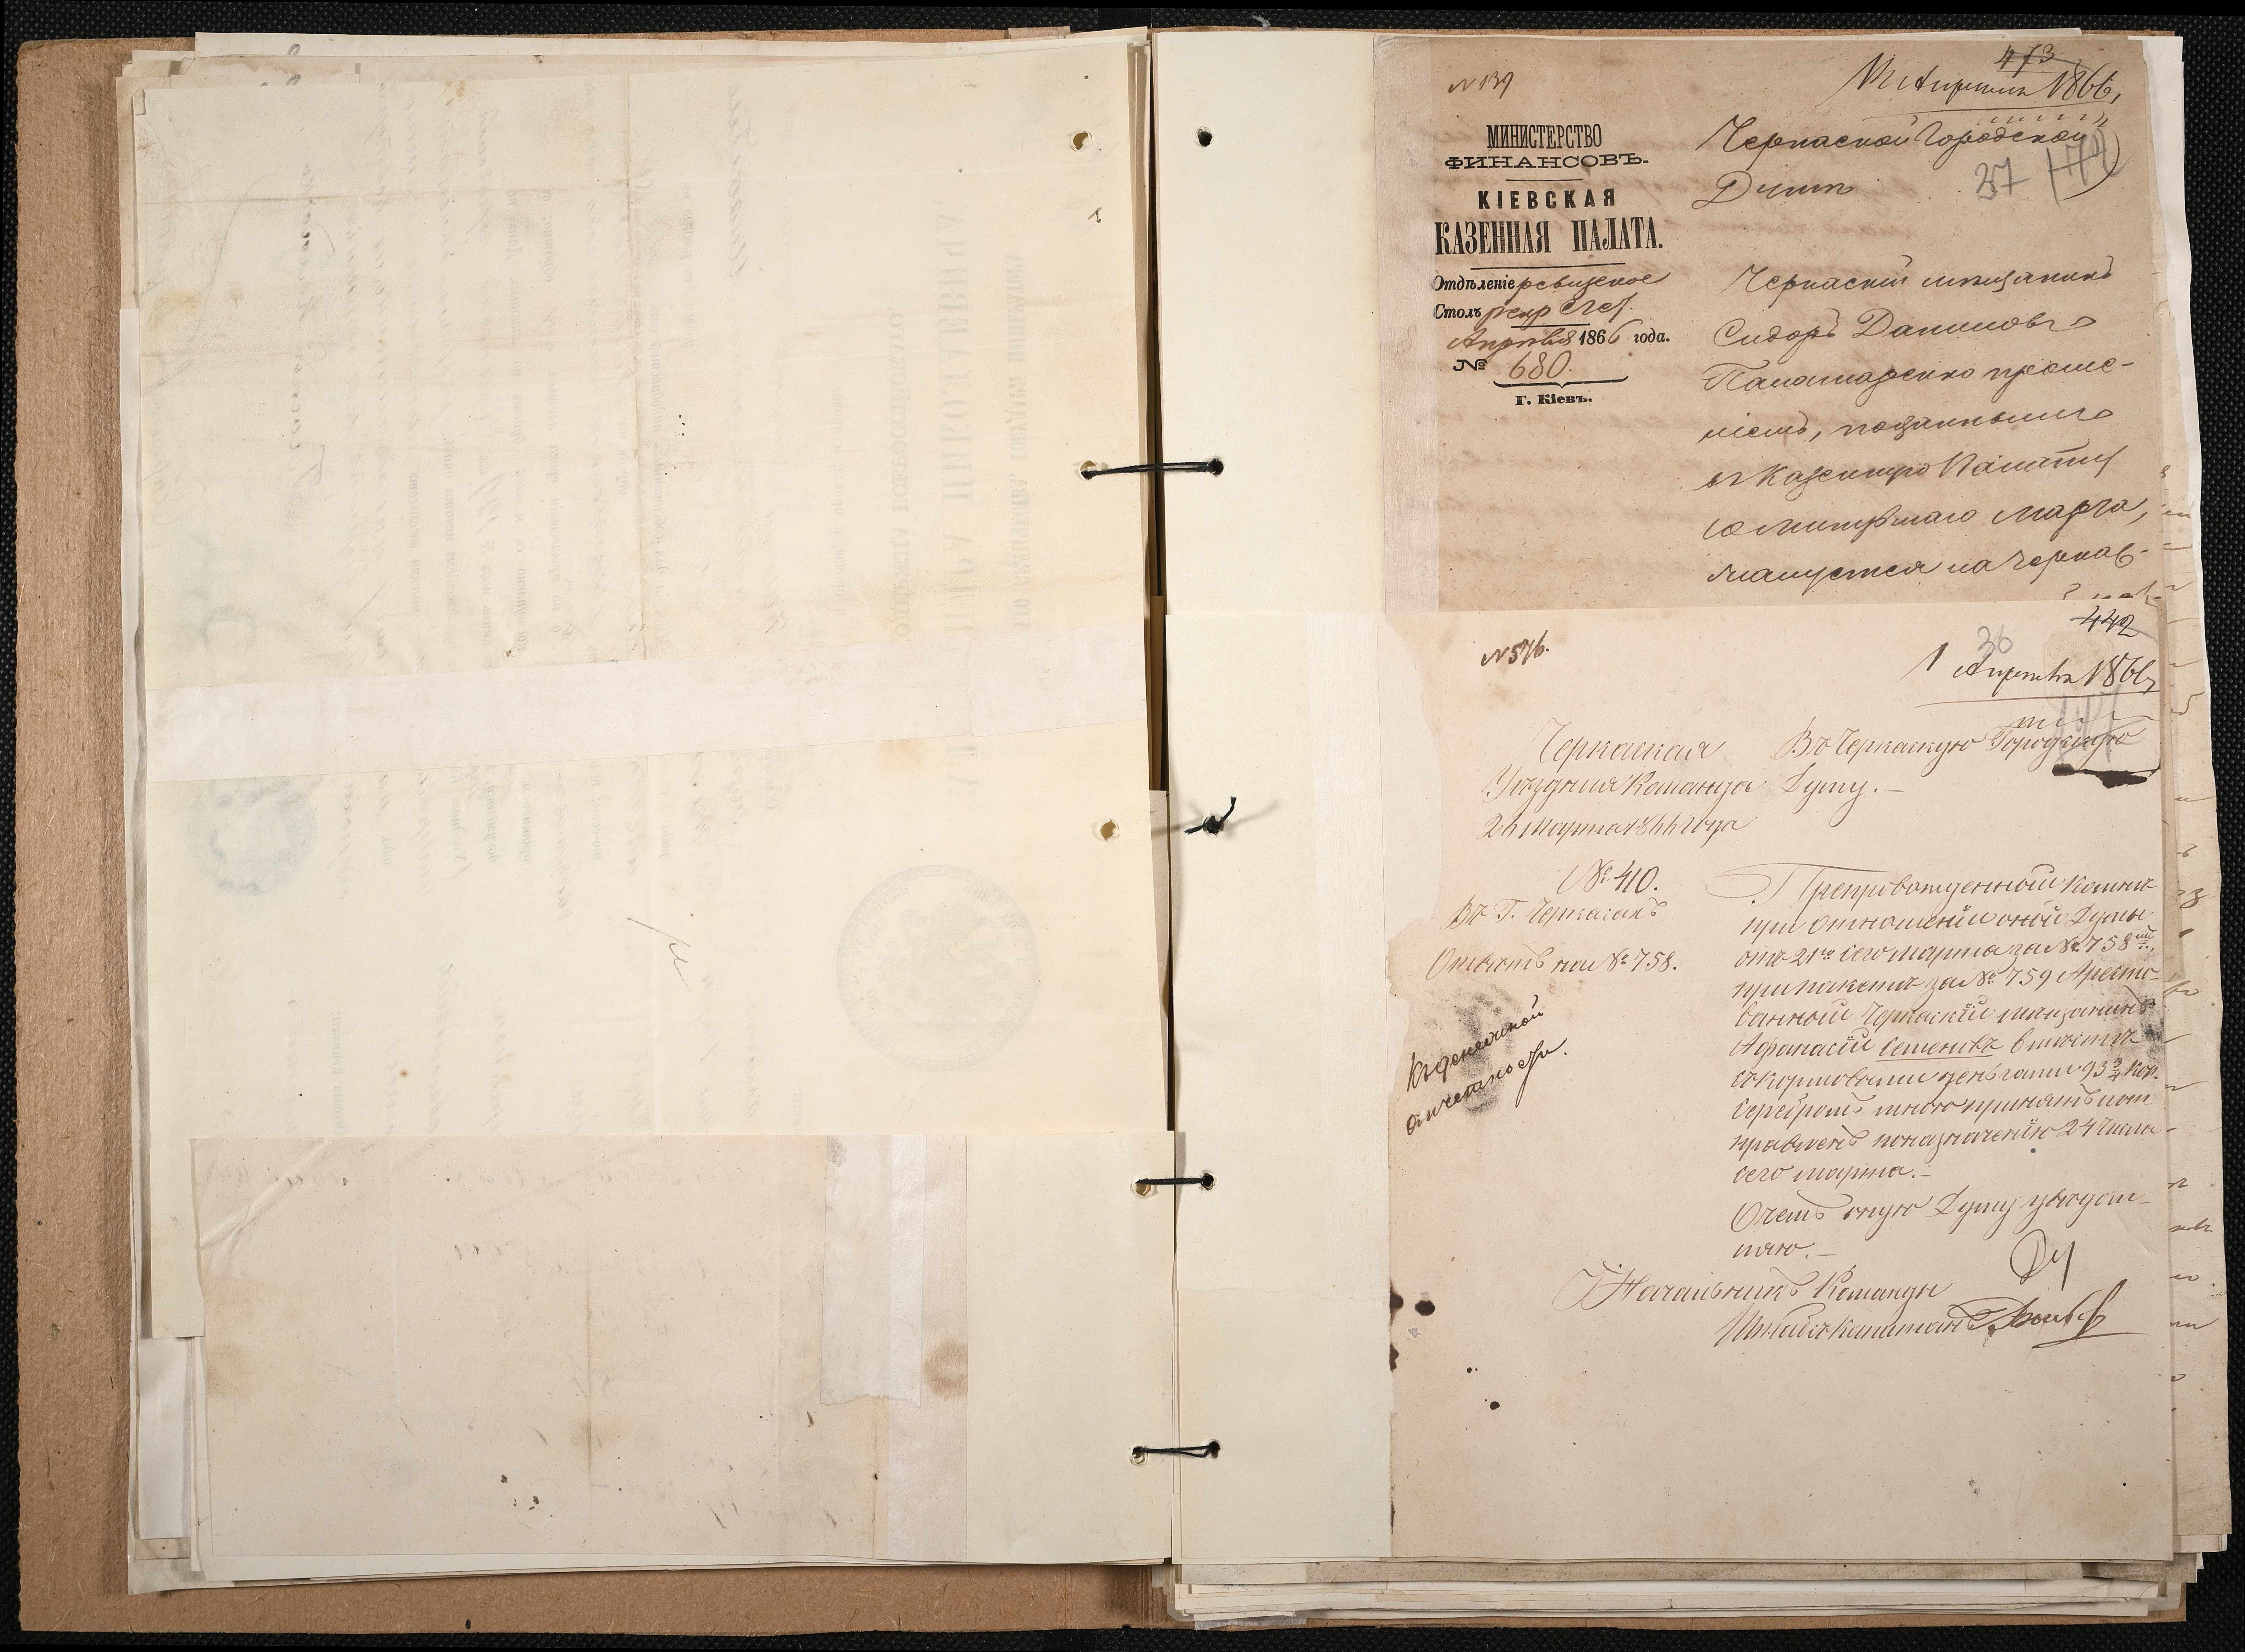 473
№ 139
12 Апреля 1866,
МИНИСТЕРСТВО
ФИНАНСОВЪ.
КІЕВСКАЯ
КАЗЕННАЯ ПАЛАТА.
Отдѣленіе ревизское
Столъ рекр. счет.
Апрѣля 1866 года.
№ 680.
Г. Кіевъ.
Черкаской Городской
37
Думѣ
Черкаскій мѣщанинъ
Сидоръ Даниловъ
Паламаренко проше-
ніемъ, поданнымъ
въ Казенную Палату
минувшаго Марта,
жалуется на Черкас-
442
№ 576.
36
1 Апрѣля 1866,
Черкаская
Уѣздная Команда
26 Марта 1866 года
№ 410.
Въ Г. Черкасахъ
Отвѣтъ на № 758.
Къ денежной
отчетности.
Въ Черкаскую Городскую
Думу.—
Препровожденный ко мнѣ
при отношеніи оной Думы
отъ 21го сего марта за № 758
при пакетѣ за № 759 Аресто-
ванный Черкаскій мѣщанинъ
Афанасій Семенивъ вмѣстѣ
съ кормовыми деньгами 93 3/4 коп.
серебромъ мною принятъ и от
правленъ по назначенію 24 числа
сего марта.—
О чемъ оную Думу увѣдом-
ляю.—
Начальникъ Команды
Штабсъ Капитанъ